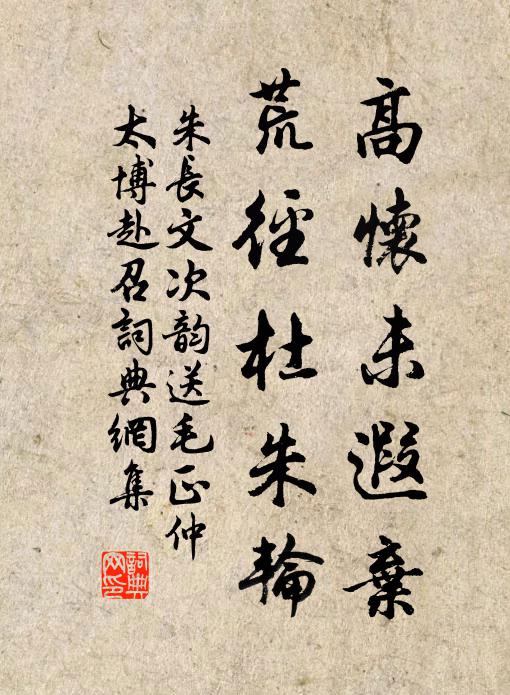 高懷未遐棄
荒徑杜朱輪
朱長文次韵送毛正仲
太博赴召詞典網集
詞典
网印